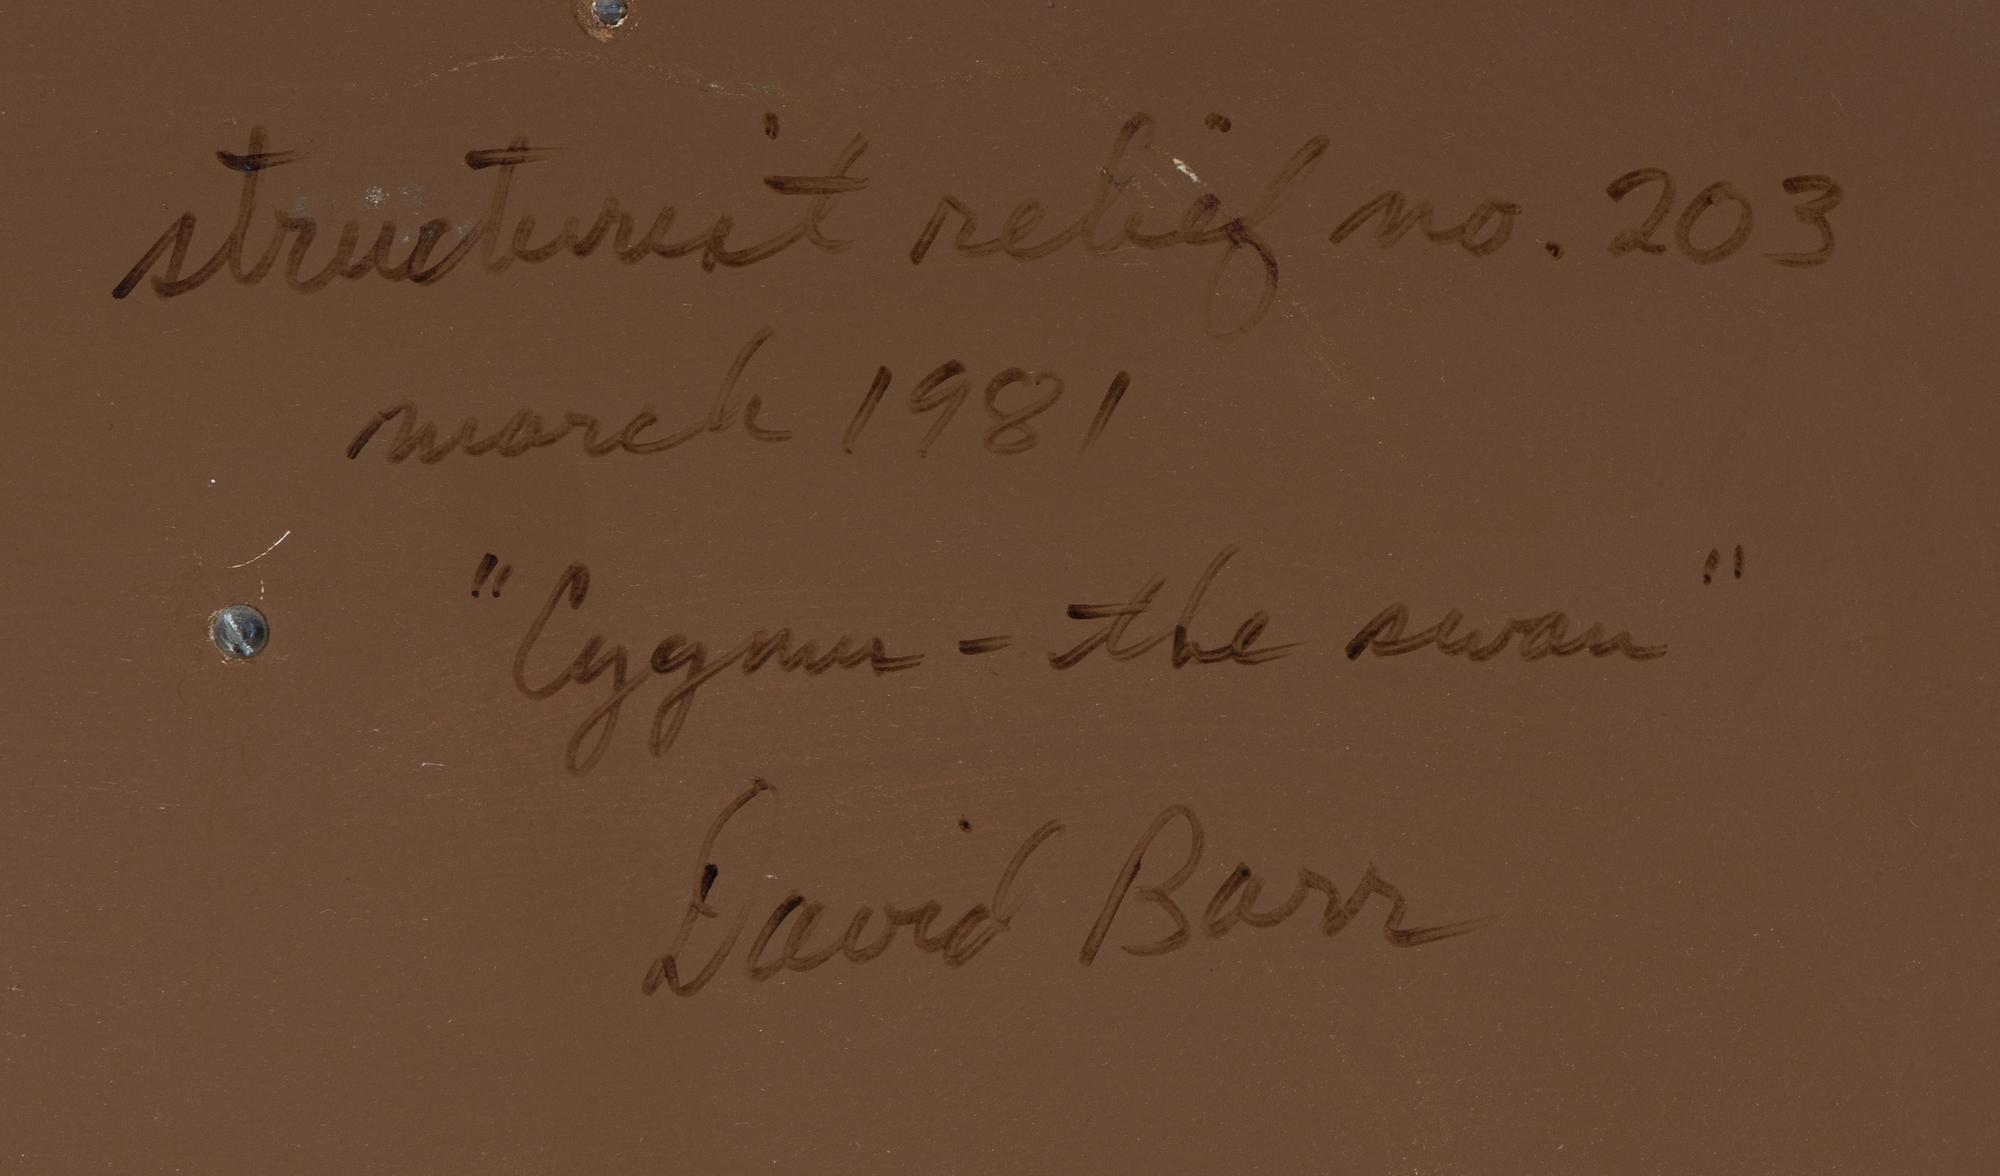 structurist relief no. 203
march 1981
"Cygnus - the swan"
David Barr